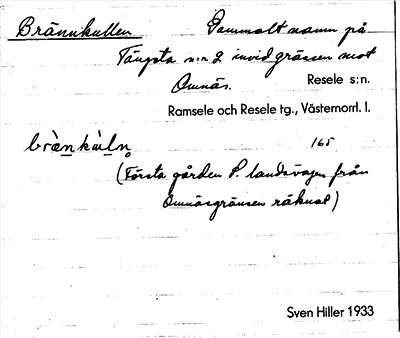 Brännkullen Gammalt namn på
Tängsta n:r 2 invid gränsen mot
Omnäs. Resele s:n.
Ramsele och Resele tg., Västernorrl. l.
brànkùln̥ 165
(Första gården f. landsvägen från
Omnäsgränsen räknat)
Sven Hiller 1933